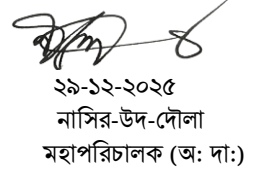 ২৯-১২-২০২৫
নাসির-উদ-দৌলা
মহাপরিচালক (অ: দা:)